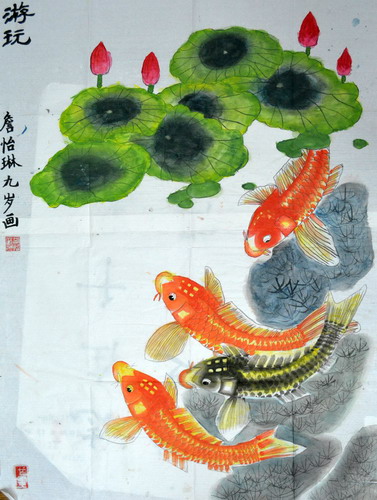 游玩
詹怡琳九岁画